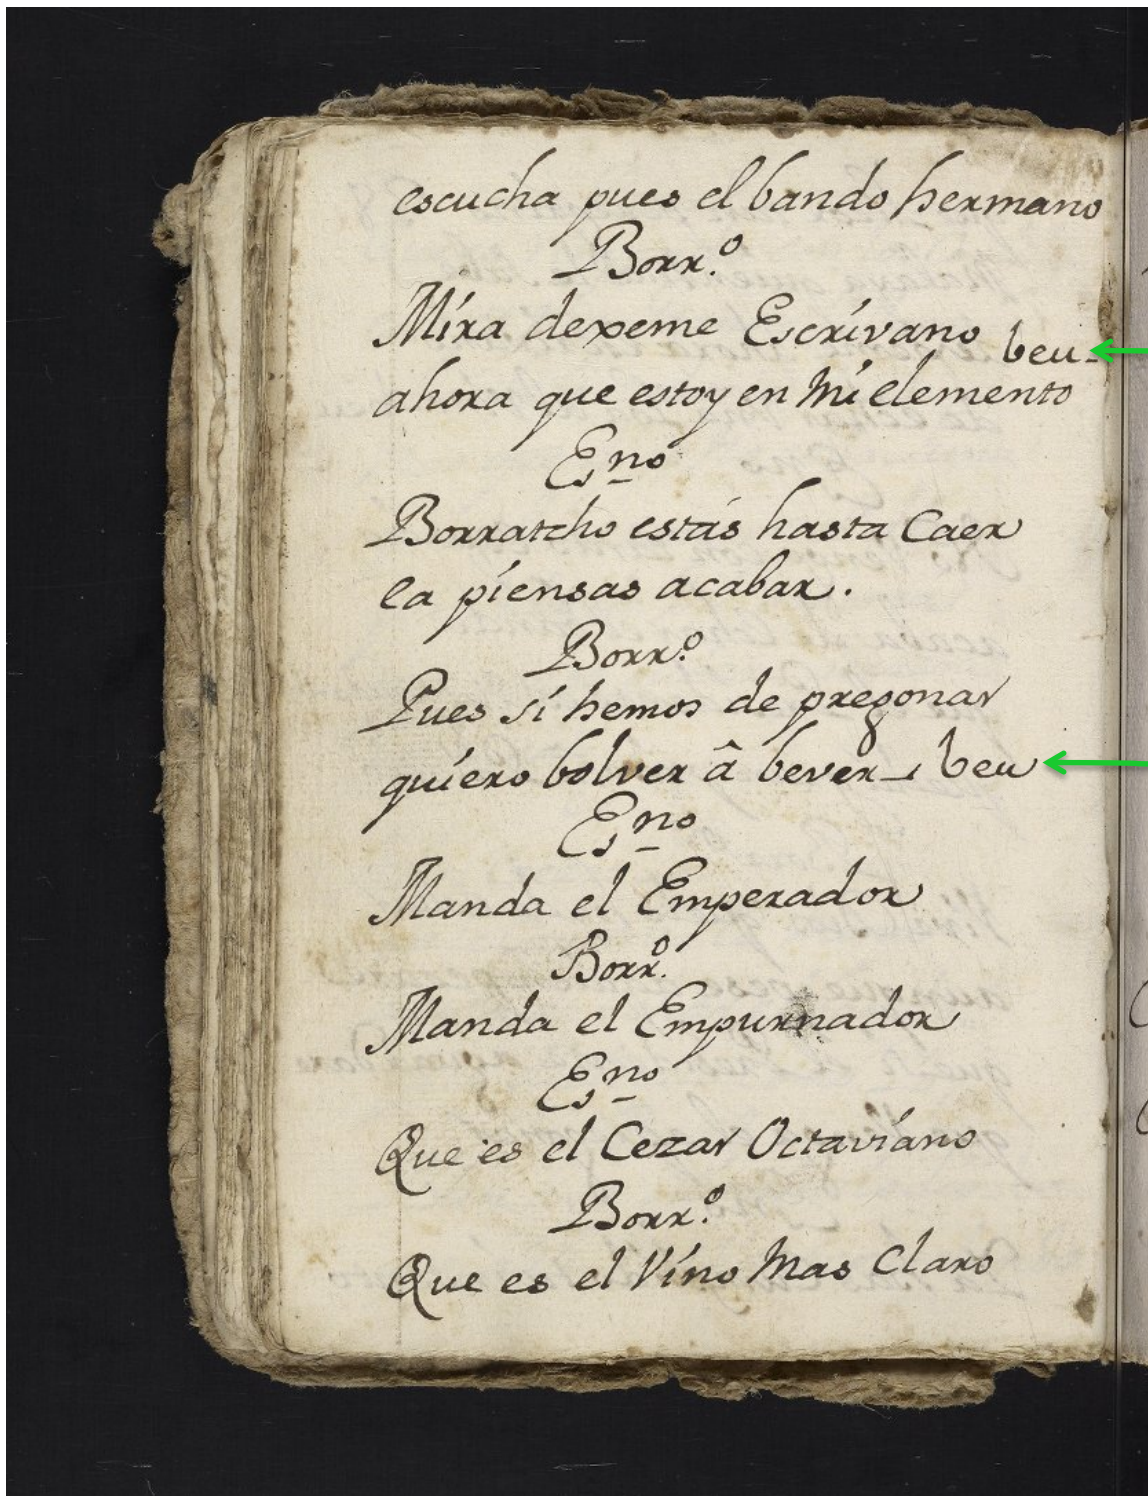 escucha pues el bando hermano
Borr.º
Mira dexeme Escrivano beu-
ahora que estoy en Mi elemento
Es.no
Borratcho estás hasta Caer
la piensas acabar.
Borr.º
Pues si hemos de pregonar
quiero bolver â bever beu
Es.no
Manda el Emperador
Borr.º
Manda el Empurnador
Es.no
Que es el Cezar Octaviano
Borr.º
Que es el Vino Mas Claro